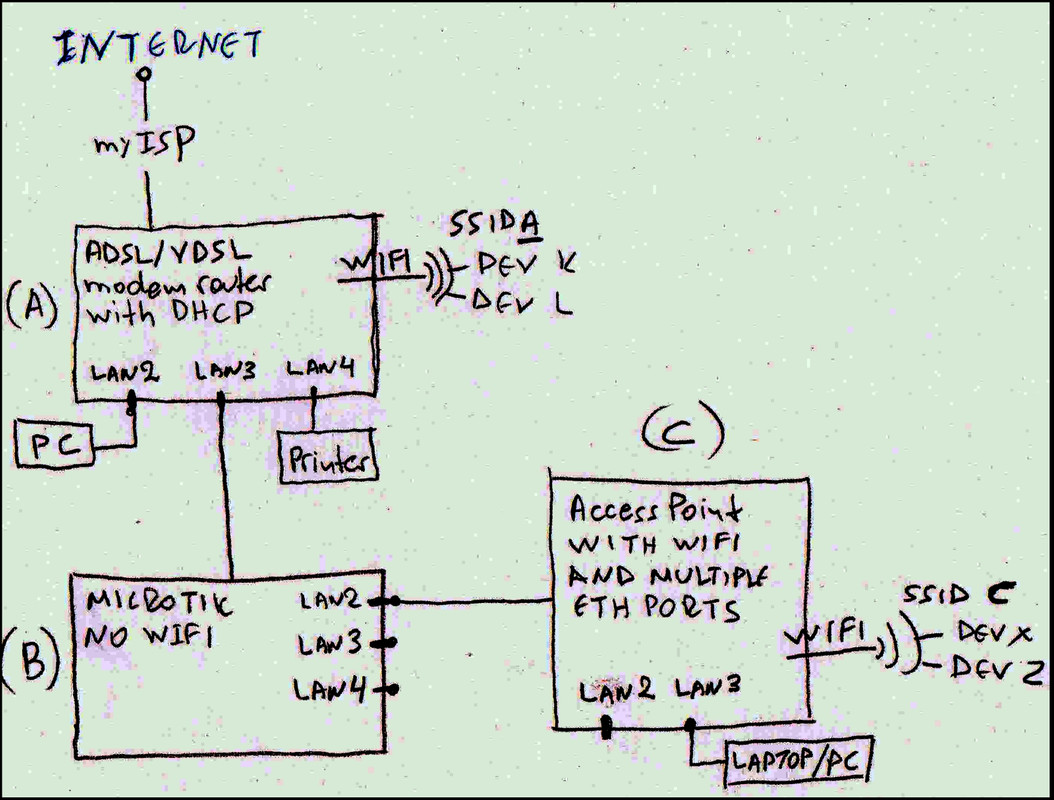 INTERNET
my ISP
(A)
ADSL/VDSL
modem router
with DHCP
WIFI
SSID A
DEV K
DEV L
LAN2 LAN3 LAN4
PC
Printer
(B)
MICROTIK
NO WIFI
LAN2
LAN3
LAN4
(C)
Access Point
WITH WIFI
AND MULTIPLE
ETH PORTS
WIFI
SSID C
DEV X
DEV Z
LAN2 LAN3
LAPTOP/PC